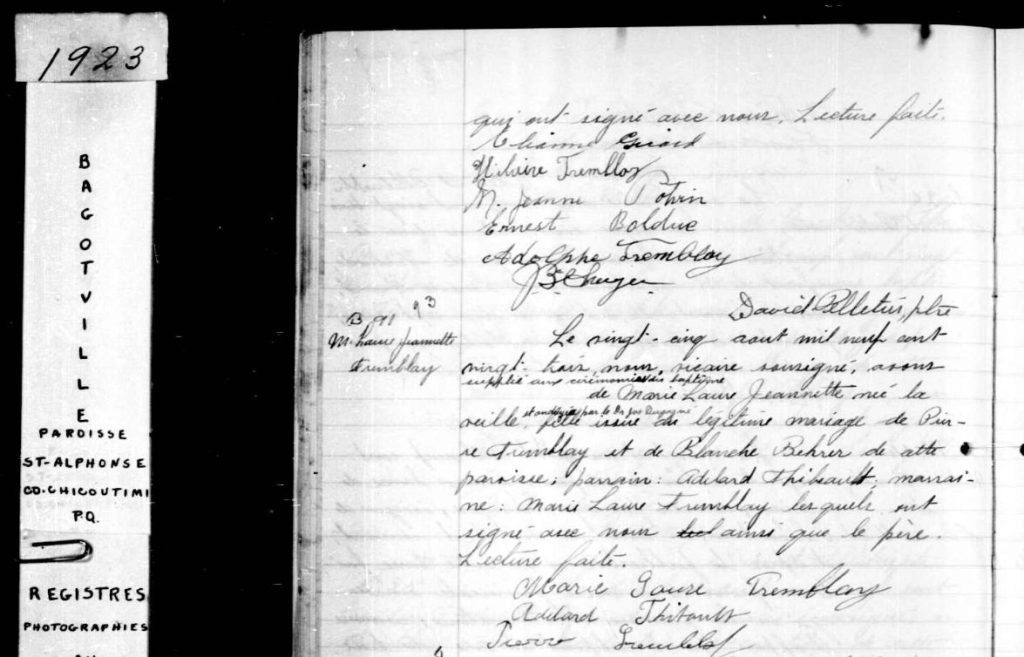 1923
BAGOTVILLE
PAROISSE
ST-ALPHONSE
CO-CHICOUTIMI
P.Q.
REGISTRES
PHOTOGRAPHIES
qui ont signé avec nous. Lecture faite.
Girard
Tremblay
M. Jeanne Potvin
Ernest Bolduc
Adolphe Tremblay
David Pelletier, ptre
B 91 93
M. Laure Jeannette
Tremblay
Le vingt-cinq aout mil neuf cent
vingt-trois, nous, vicaire soussigné, avons
suppléé aux cérémonies du baptême
de Marie Laure Jeannette née la
veille, et ondoyée par le Dr Jos issue du légitime mariage de Pier-
re Tremblay et de Blanche de cette
paroisse; parrain: Adelard Thibeault; marrai-
ne: Marie Laure Tremblay lesquels ont
signé avec nous ainsi que le père.
Lecture faite.
Marie Laure Tremblay
Adelard Thibault
Pierre Tremblay